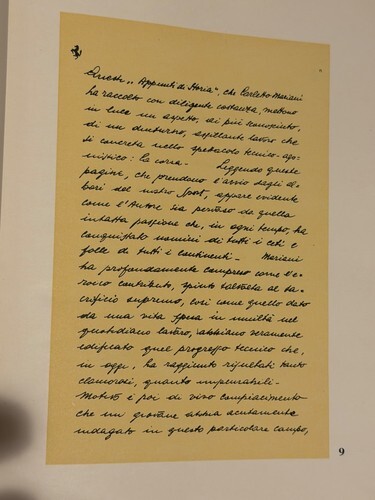 Questi "Appunti di Storia", che Carletto Mariani
ha raccolto con diligente costanza, mettono
in luce un aspetto, ai più sconosciuto,
di un diuturno, assillante lavoro che
si concreta nello spettacolo tecnico-ago-
nistico: la corsa. Leggendo queste
pagine, che prendono l'avvio dagli al-
bori del nostro Sport, appare evidente
come l'Autore sia pervaso da quella
intatta passione che, in ogni tempo, ha
conquistato uomini di tutti i ceti e
folle di tutti i continenti. Mariani
ha profondamente compreso come l'e-
roico contributo, spinto talvolta al sa-
crificio supremo, così come quello dato
da una vita spesa in umiltà nel
quotidiano lavoro, abbiano veramente
edificato quel progresso tecnico che,
in oggi, ha raggiunto risultati tanto
clamorosi, quanto impensabili.
Motivo è poi di vivo compiacimento
che un giovane abbia acutamente
indagato in questo particolare campo,
9